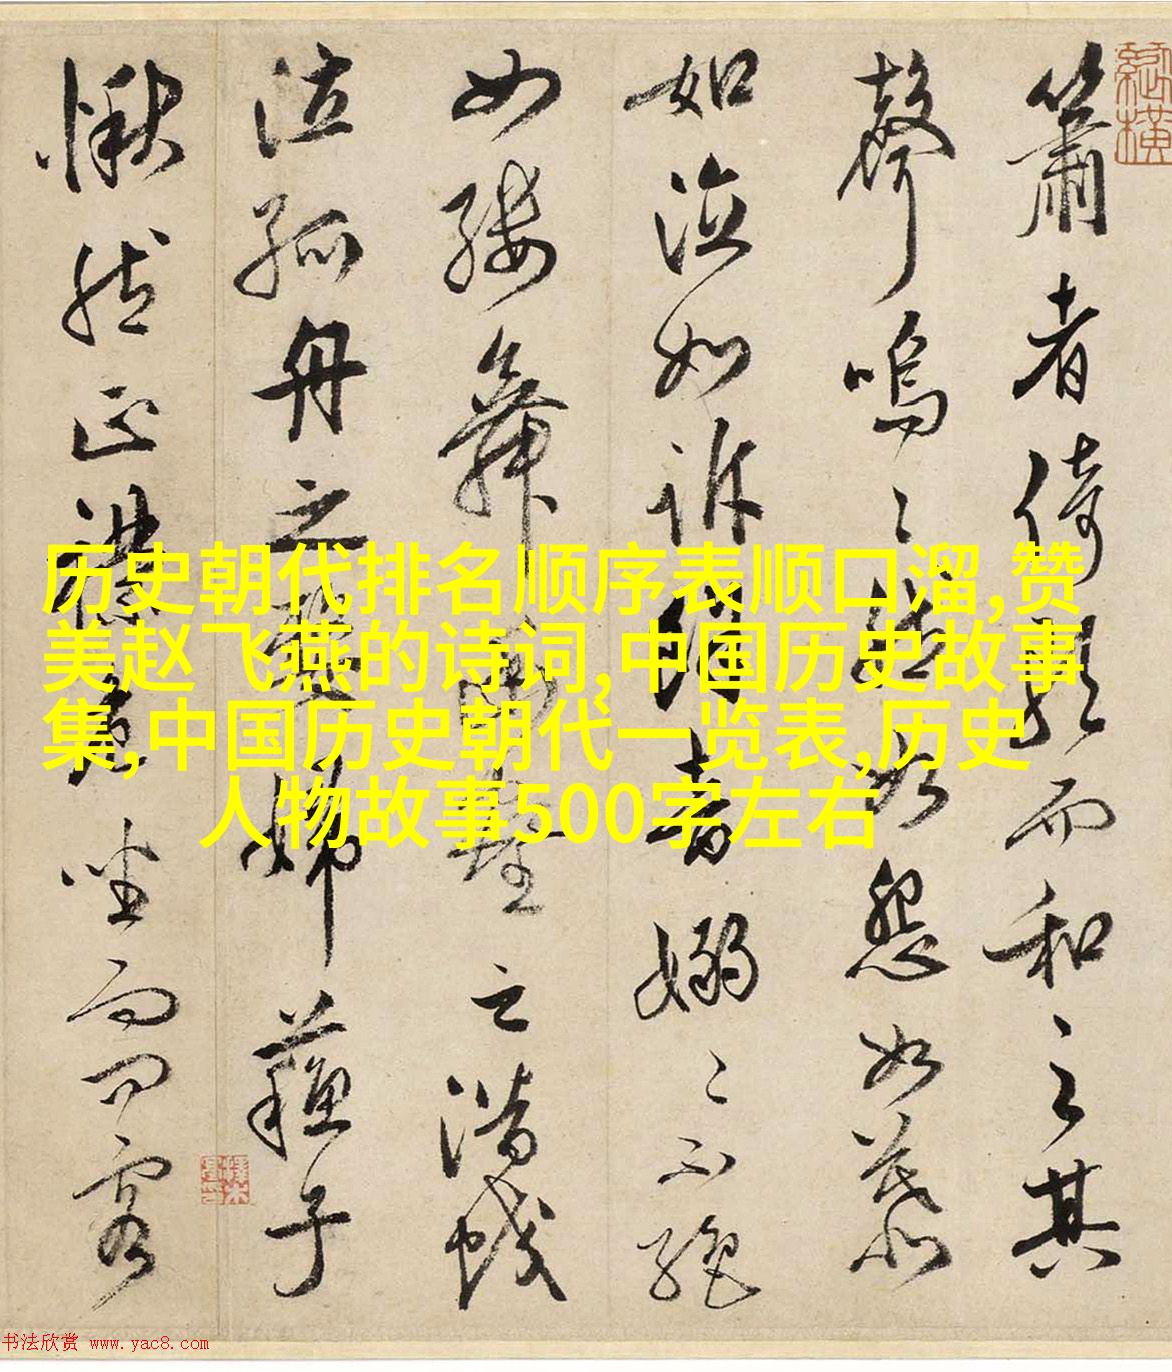 簫者倚歌而和之其
聲嗚々然如怨如慕
如泣如訴餘音嫋々不絕
如縷舞幽壑之潛蛟
泣孤舟之嫠婦蘇子
愀然正襟危坐而問客
历史朝代排名顺序表顺口溜,赞
美赵飞燕的诗词,中国历史故事
集,中国历史朝代一览表,历史
人物故事500字左右
书法欣赏 www.yac8.com